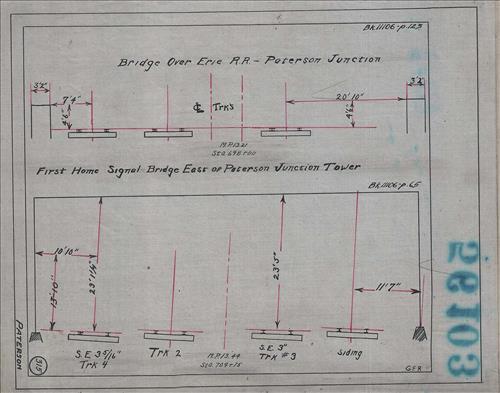 Bk.11106-p.123
Bridge Over Erie R.R. - Paterson Junction
3'2"
3'2"
7'4"
20'10"
4'6"
℄ Trk's
4'6"
M.P.13.21
Sta.698+00
First Home Signal Bridge East of Paterson Junction Tower
Bk.11106-p.65
10'10"
13'10"
23'5"
11'7"
56103
S.E. 3 5/16"
Trk 4
Trk 2
M.P.13.44
Sta.709+75
S.E. 3"
Trk #3
Siding
Paterson
315
G.F.R.